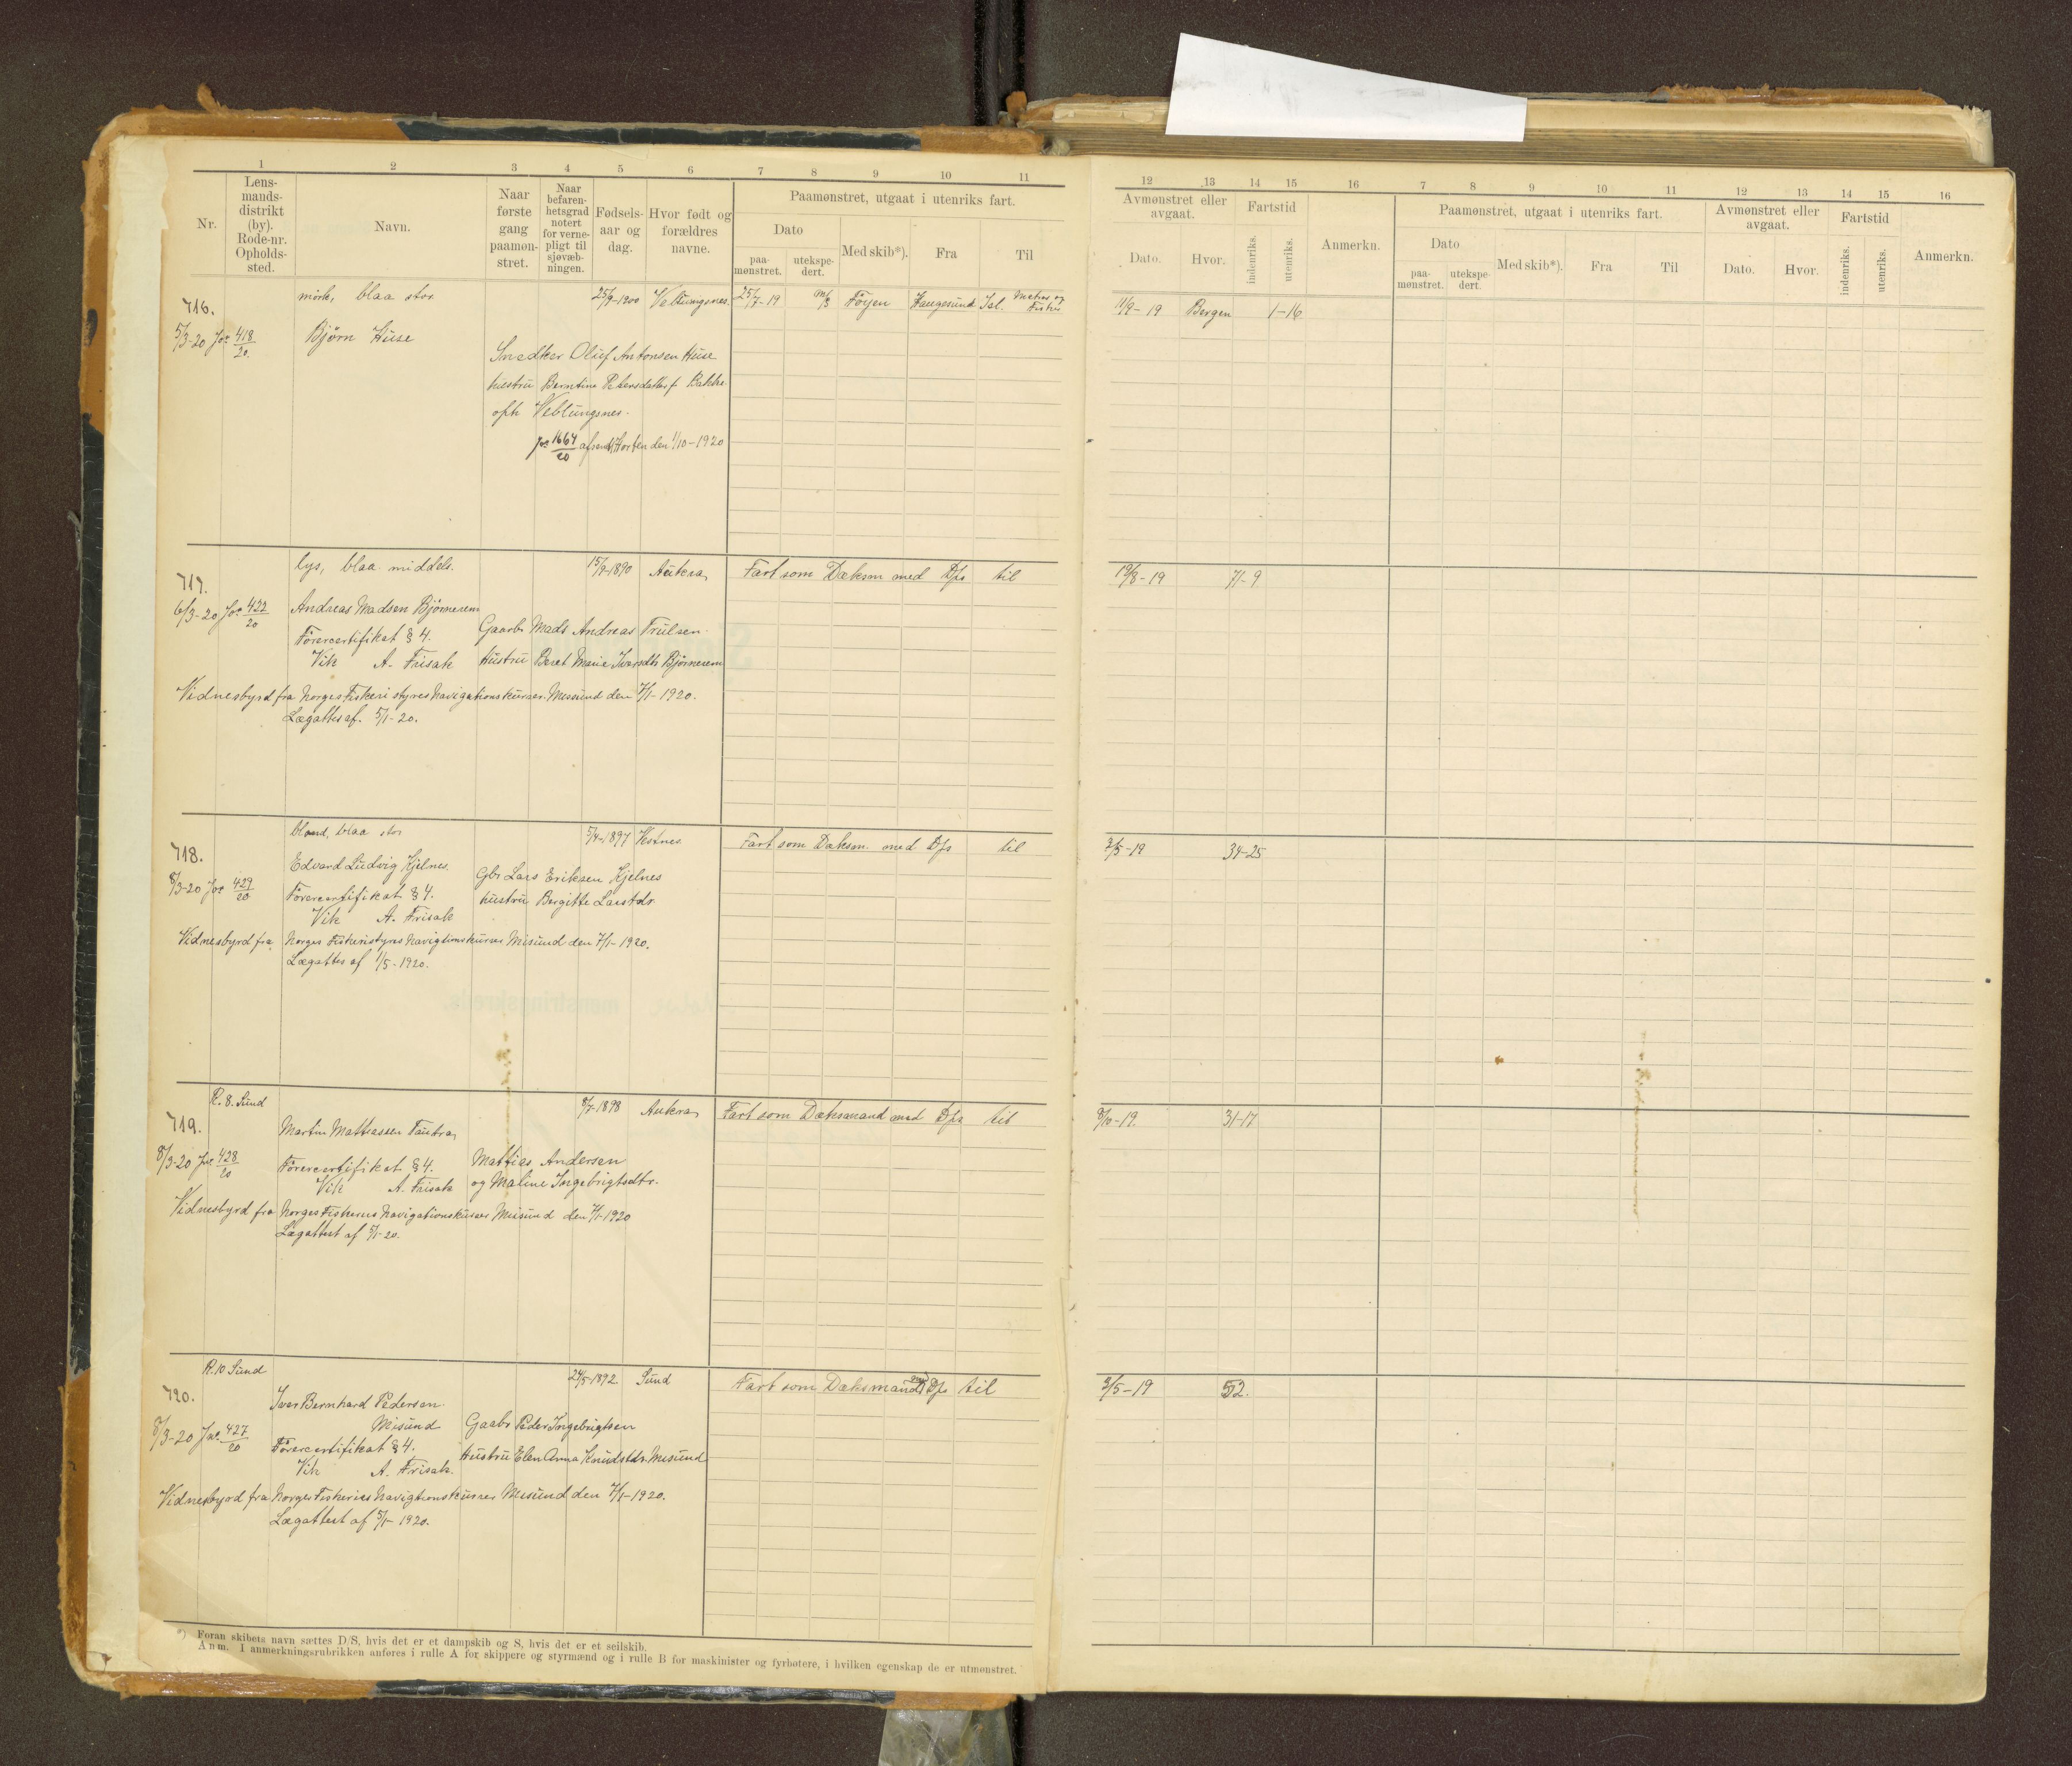 1 2 3 4 5 6 7 8 9 10 11
Nr.
Lens-
mands-
distrikt
(by).
Rode-nr.
Opholds-
sted.
Navn.
Naar
første
gang
paamøn-
stret.
Naar
befaren-
hetsgrad
notert
for verne-
pligt til
sjøvæb-
ningen.
Fødsels-
aar og
dag.
Hvor født og
forældres
navne.
Paamønstret, utgaat i utenriks fart.
Dato
paa-
mønstret.
utekspe-
dert.
Med skib*).
Fra
Til
12 13 14 15 16 7 8 9 10 11 12 13 14 15 16
Avmønstret eller
avgaat.
Dato.
Hvor.
Fartstid
indenriks.
utenriks.
Anmerkn.
Paamønstret, utgaat i utenriks fart.
Dato
paa-
mønstret.
utekspe-
dert.
Med skib*).
Fra
Til
Avmønstret eller
avgaat.
Dato.
Hvor.
Fartstid
indenriks.
utenriks.
Anmerkn.
716.
mörk, blaa stor
25/9-1900 Veblungsnes 25/7-19 Haugesund Isl.
11/9-19 Bergen 1-16
5/3-20 Jor 418/20.
Bjørn Huse
Snedker Oluf Antonsen Huse
hustru Berntine Petersdatter f. Bakke
oph Veblungsnes.
1664/20 afsendt Horten den 1/10-1920
717.
lys, blaa middels.
15/9-1890 Aukra
Fart som Dæksm med Dfs til
19/8-19 71-9
6/3-20 Jor 422/20
Andreas Madsen Bjørnerem
Förercertifikat § 4.
Gaarbr Mads Andreas Trulsen
Vik A. Frisak
Hustru Beret Marie Iversdtr Bjørnerem
Vidnesbyrd fra Norges Fiskeristyres Navigationskurser Misund den 7/1-1920.
Lægattes af. 5/1-20.
718.
blond, blaa stor
5/4-1897
Fart som Dæksm. med Dfs til
3/5-19 34-25
8/3-20 Jor 429/20
Edvard Ludvig Kjelnes.
Gbr Lars Eriksen Kjelnes
Förercertifikat § 4.
hustru Bergitte Larsdtr
Vik A. Frisak
Vidnesbyrd fra Norges Fiskeristyres Navigtionskurser Misund den 7/1-1920.
Lægattes af 1/5-1920.
R. 8. Sund
8/7-1898 Aukra
Fart som Dæksmand med Dfs til
8/10-19. 31-17
719.
Martin Mathiassen Tautra
8/3-20 Jor 428/20
Förercertifikat § 4.
Mattias Andersen
Vik A. Frisak
og Maline Ingebrigtsdtr.
Vidnesbyrd fra Norges Fiskeries Navigationskurser Misund den 7/1-1920
Lægattest af 5/1-20.
R. 10 Sund
24/5-1892. Sund
Fart som Dæksmand med Dfs til
3/5-19 52.
720.
Iver Bernhard Pedersen
Misund
8/3-20 Jor 427/20
Gaabr Peder Ingebrigtsen
Förercertifikat § 4.
Hustru Elen Anna Knudstdr. Misund
Vik A. Frisak.
Vidnesbyrd fra Norges Fiskeries Navigtionskurser Misund den 7/1-1920.
Lægattest af 5/1-1920.
*) Foran skibets navn sættes D/S, hvis det er et dampskib og S, hvis det er et seilskib.
Anm. I anmerkningsrubrikken anføres i rulle A for skippere og styrmænd og i rulle B for maskinister og fyrbøtere, i hvilken egenskap de er utmønstret.